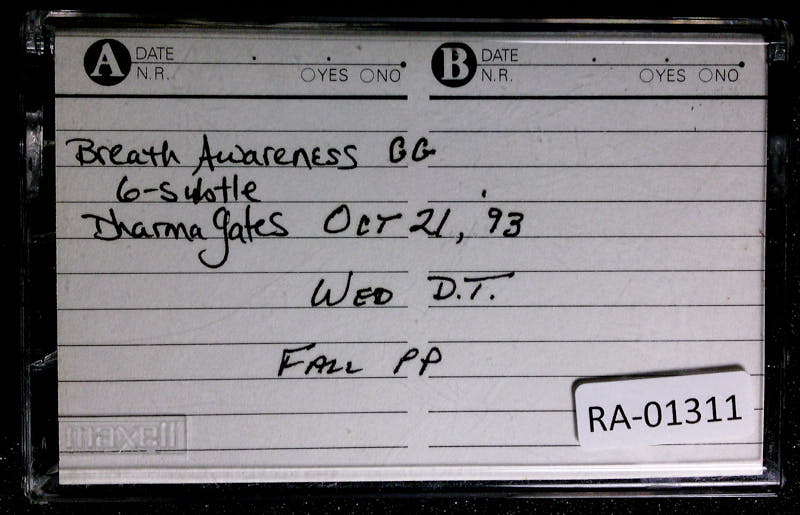 A DATE . . .
N.R. ○YES ○NO
B DATE . . .
N.R. ○YES ○NO
Breath Awareness GG
6-subtle
Dharma Gates Oct 21, '93
Wed D.T.
Fall PP
RA-01311
maxell